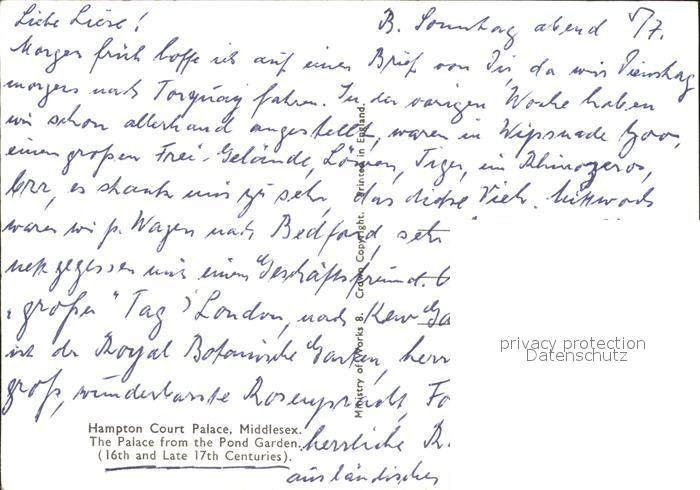 Liebe Liese!
B. Sonntag abend 5/7.
Morgen früh hoffe ich auf einen Brief von Dir, da wir Dienstag
morgens nach Torquay fahren. In der vorigen Woche haben
wir schon allerhand angestellt, waren in Wipsnade Zoo,
einem großen Frei-Gelände, Löwen, Tiger, ein Rhinozeros,
brr, es stank mir zu sehr, das dicke Vieh. Mittwoch
waren wir p. Wagen nach Bedford, sehr
nett gegessen mit einem Geschäftsfreund.
"großer" Tag London, nach Kew Ga
ist der Royal Botanische Garten, herr
groß, wunderbarste Rosenpracht, Fo
herrliche R.
ausländischen
Hampton Court Palace, Middlesex.
The Palace from the Pond Garden.
(16th and Late 17th Centuries).
Ministry of Works 8. Crown Copyright. Printed in England.
privacy protection
Datenschutz